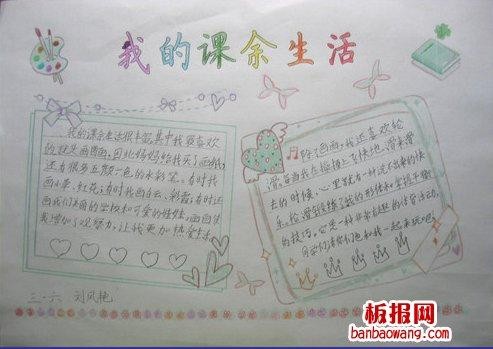 我的课余生活
我的课余生活很丰富,其中我最喜欢
的就是画画,因此妈妈给我买了画纸,
还有很多五颜六色的水彩笔。有时我
画小草、红花;有时我画白云、彩霞;有时还
画我们美丽的学校和可爱的娃娃。画画使
我增加了观察力,让我更加热爱生活。
除了画画,我还喜欢轮
滑。每当我在操场上飞快地滑来滑
去的时候,心里就有一种说不出来的快
乐。轮滑锻炼了我的形体和掌握平衡
的技巧,它是一种非常有趣的体育活动,
同学们请你们也和我一起来玩吧。
三·六 刘凤艳
板报网
banbaowang.com